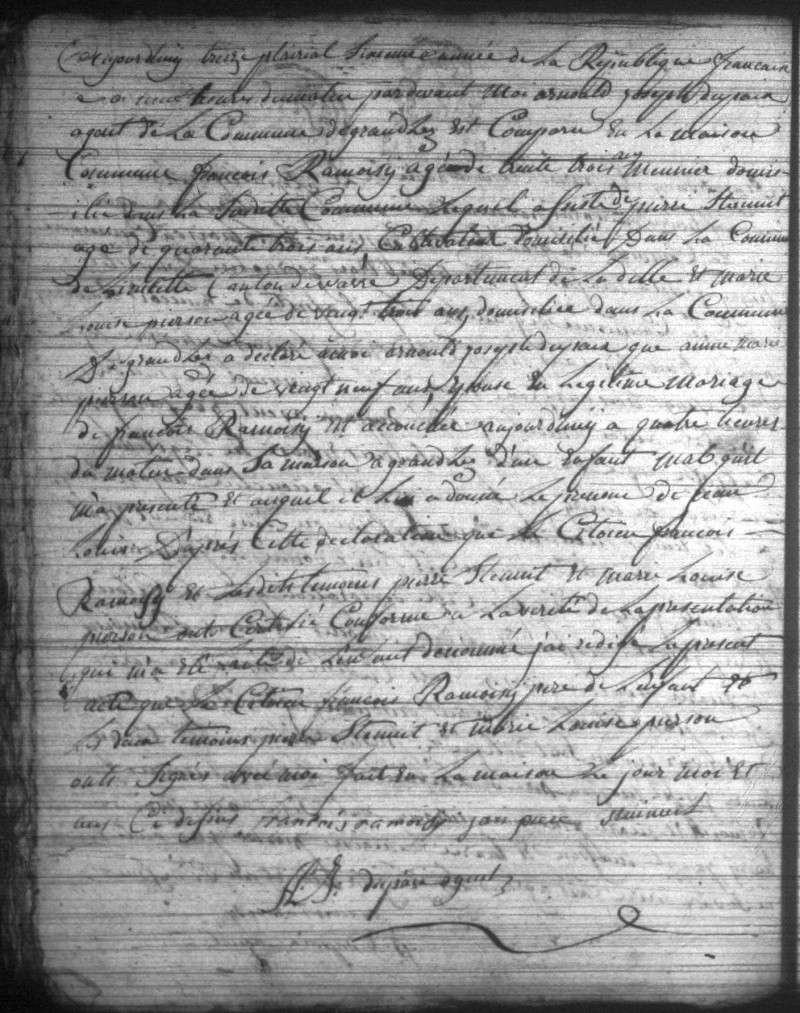 Aujourdhuy treize plairial sixieme année de La République francaise
a neuf heures du matin pardevant Moi arnould joseph dupaix
agent de La Commune de grandhez est Comparu En La maison
Commune françois Ramoisy agé de trente trois ans Meunier domici-
-lié dans La Susditte Commune Lequel assisté de pierre Stenuit
agé de quarante trois ans Cultivateur domicilié Dans La Commune
de Limelette Canton de wavre Departement de La dille Et Marie
Louise pierson agée de vingt trois ans domiciliée dans La Commune
De grandhez a déclaré a moi arnould joseph dupaix que anne marie
pierson agée de vingt neuf ans Epouse En Legitime Mariage
de françois Ramoisy Est accouchée aujourdhuy a quatre heures
du matin dans Sa maison a grandhez d'un Enfant mal quil
m'a presenté Et auquel il Lui a donné Le prenom de jean
Louis D'après Cette declaration que Le Citoien françois
Ramoisy Et Lesdits temoins pierre Stenuit Et marie Louise
pierson ont Certifié Conforme à La verité de La presentation
qui m'a été faite de L'enfant denommé j'ai redigé Le present
acte que Le Citoien françois Ramoisy pere de L'enfant Et
Les deux temoins pierre Stenuit Et marie Louise pierson
onts Signés avec moi fait En La maison Le jour Moi Et
ans Ci dessus francois ramoisy jan piere stainuit
A. J. dupaix agent